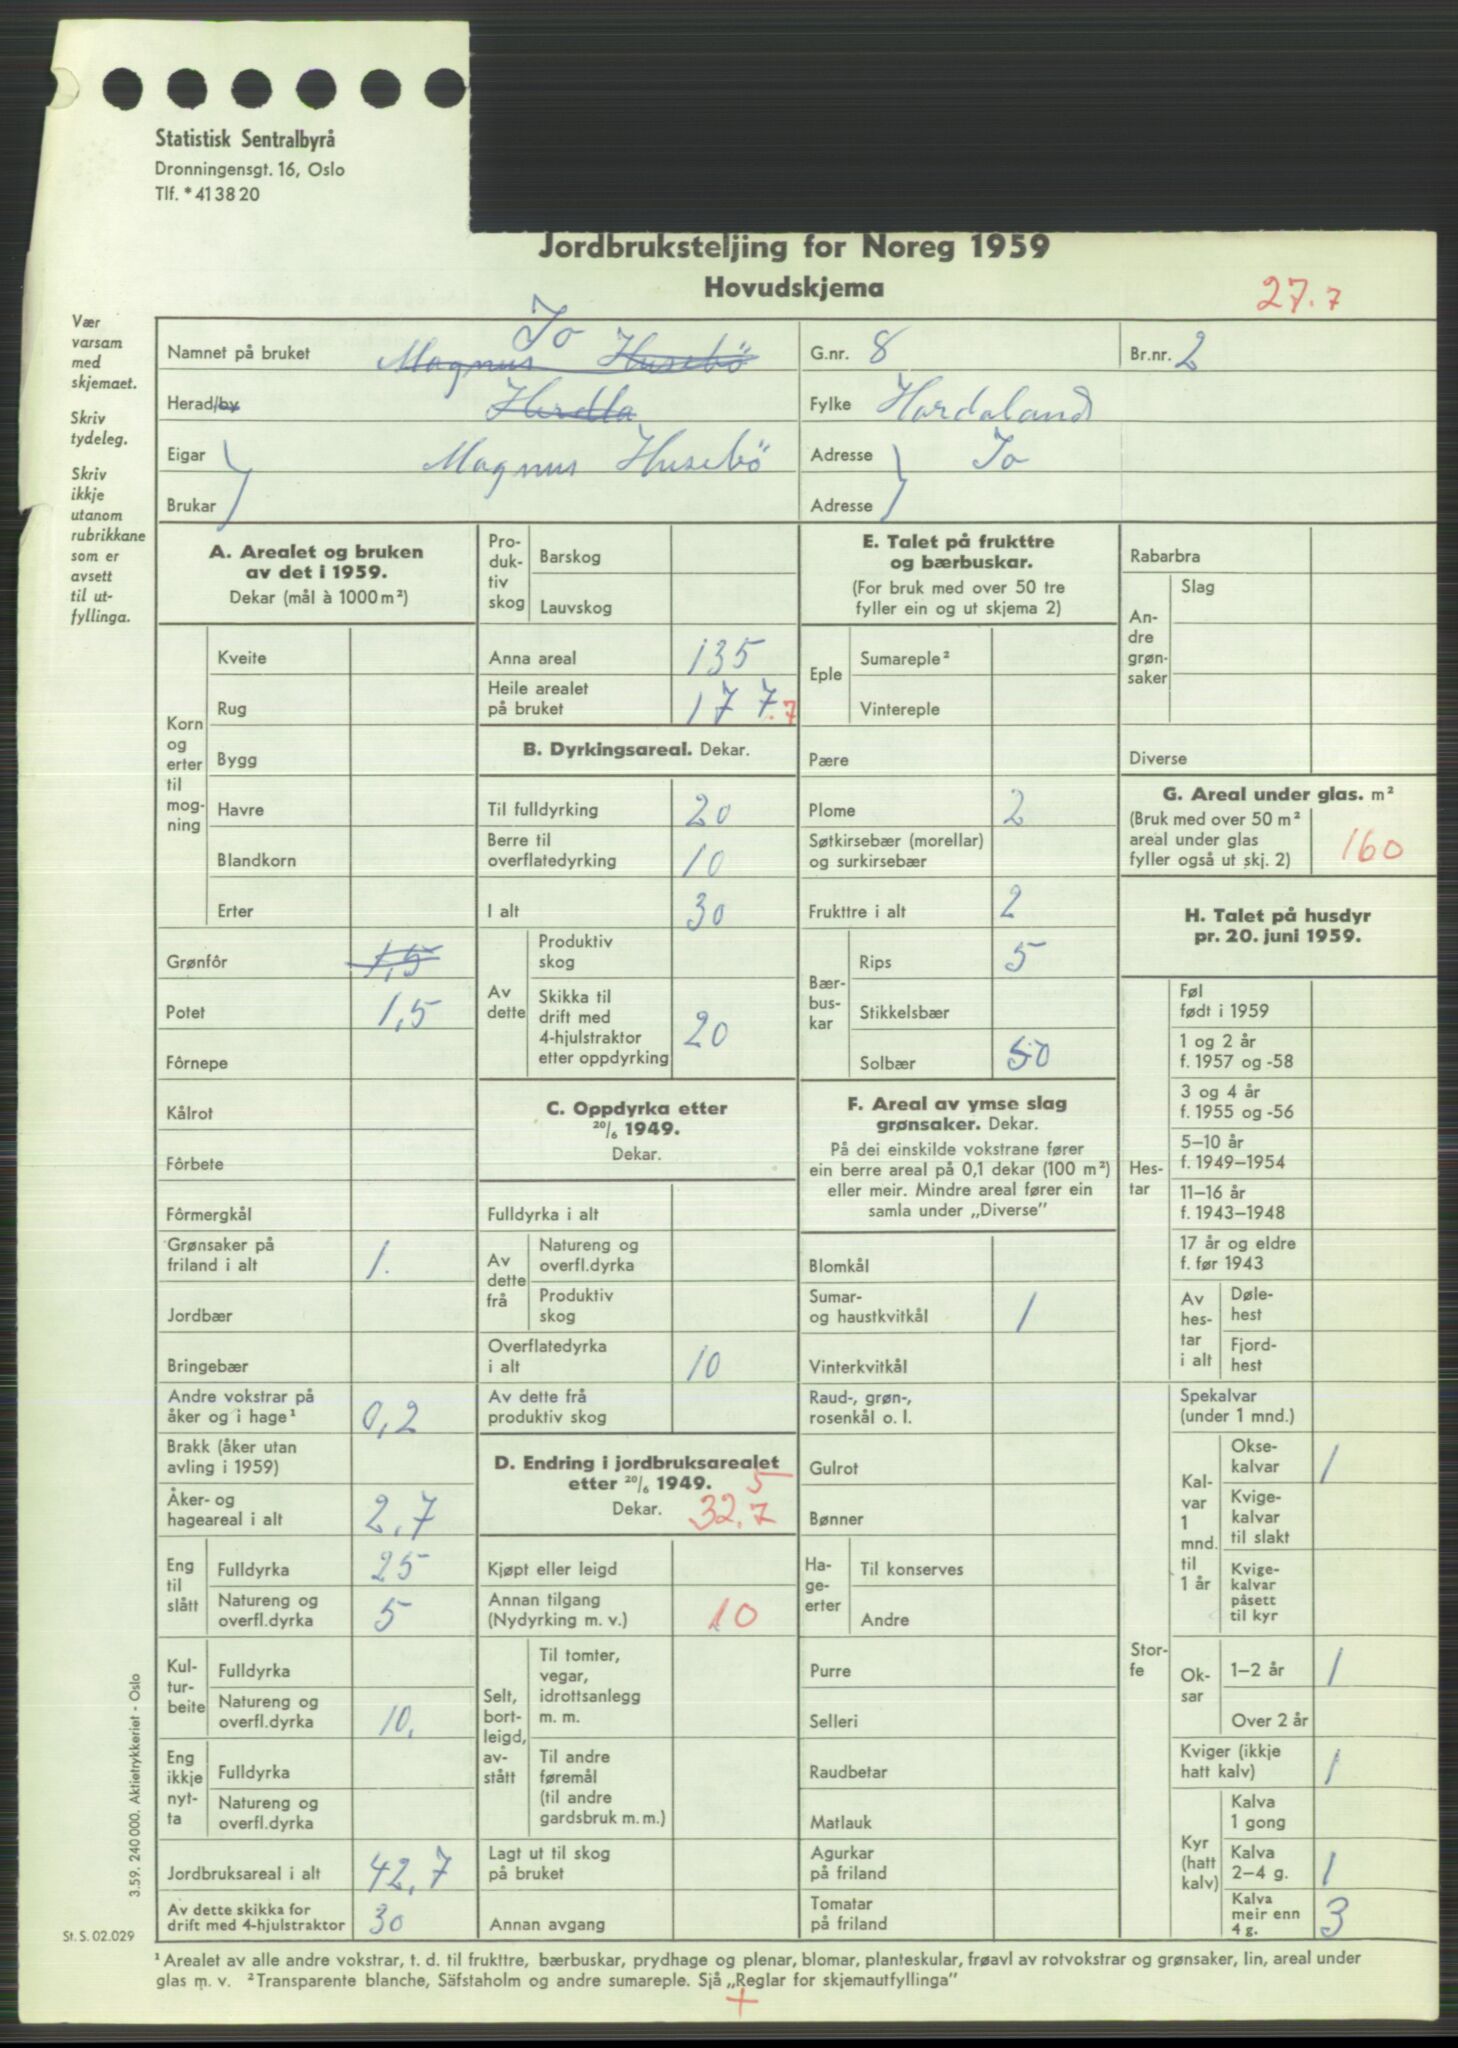 Statistisk Sentralbyrå
Dronningensgt. 16, Oslo
Tlf. *41 38 20
Jordbruksteljing for Noreg 1959
Hovudskjema
27.7
Vær
varsam
med
skjemaet.
Skriv
tydeleg.
Skriv
ikkje
utanom
rubrikkane
som er
avsett
til ut-
fyllinga.
Namnet på bruket Magnus Husebö Jo G.nr. 8 Br.nr. 2
Herad/by Herdla Fylke Hordaland
Eigar Magnus Husebö Adresse Jo
Brukar Adresse
A. Arealet og bruken
av det i 1959.
Dekar (mål à 1000 m²)
Korn
og
erter
til
mog-
ning
Kveite
Rug
Bygg
Havre
Blandkorn
Erter
Grønfôr 1,5
Potet 1,5
Fôrnepe
Kålrot
Fôrbete
Fôrmergkål
Grønsaker på
friland i alt 1.
Jordbær
Bringebær
Andre vokstrar på
åker og i hage¹ 0,2
Brakk (åker utan
avling i 1959)
Åker- og
hageareal i alt 2,7
Eng
til
slått
Fulldyrka 25
Natureng og
overfl.dyrka 5
Kul-
tur-
beite
Fulldyrka
Natureng og
overfl.dyrka 10.
Eng
ikkje
nyt-
ta
Fulldyrka
Natureng og
overfl.dyrka
Jordbruksareal i alt 42,7
Av dette skikka for
drift med 4-hjulstraktor 30
Pro-
duk-
tiv
skog
Barskog
Lauvskog
Anna areal 135
Heile arealet
på bruket 177.7
B. Dyrkingsareal. Dekar.
Til fulldyrking 20
Berre til
overflatedyrking 10
I alt 30
Av
dette
Produktiv
skog
Skikka til
drift med
4-hjulstraktor
etter oppdyrking 20
C. Oppdyrka etter
20/6 1949.
Dekar.
Fulldyrka i alt
Av
dette
frå
Natureng og
overfl.dyrka
Produktiv
skog
Overflatedyrka
i alt 10
Av dette frå
produktiv skog
D. Endring i jordbruksarealet
etter 20/6 1949.
Dekar. 32.7 5
Kjøpt eller leigd
Annan tilgang
(Nydyrking m. v.) 10
Selt,
bort-
leigd,
av-
stått
Til tomter,
vegar,
idrottsanlegg
m. m.
Til andre
føremål
(til andre
gardsbruk m. m.)
Lagt ut til skog
på bruket
Annan avgang
E. Talet på frukttre
og bærbuskar.
(For bruk med over 50 tre
fyller ein og ut skjema 2)
Eple
Sumareple²
Vintereple
Pære
Plome 2
Søtkirsebær (morellar)
og surkirsebær
Frukttre i alt 2
Bær-
bus-
kar
Rips 5
Stikkelsbær
Solbær 50
F. Areal av ymse slag
grønsaker. Dekar.
På dei einskilde vokstrane fører
ein berre areal på 0,1 dekar (100 m²)
eller meir. Mindre areal fører ein
samla under „Diverse”
Blomkål
Sumar-
og haustkvitkål 1
Vinterkvitkål
Raud-, grøn-,
rosenkål o. l.
Gulrot
Bønner
Ha-
ge-
erter
Til konserves
Andre
Purre
Selleri
Raudbetar
Matlauk
Agurkar
på friland
Tomatar
på friland
Rabarbra
An-
dre
grøn-
saker
Slag
Diverse
G. Areal under glas. m²
(Bruk med over 50 m²
areal under glas
fyller også ut skj. 2) 160
H. Talet på husdyr
pr. 20. juni 1959.
Hes-
tar
Føl
født i 1959
1 og 2 år
f. 1957 og -58
3 og 4 år
f. 1955 og -56
5–10 år
f. 1949–1954
11–16 år
f. 1943–1948
17 år og eldre
f. før 1943
Av
hes-
tar
i alt
Døle-
hest
Fjord-
hest
Stor-
fe
Spekalvar
(under 1 mnd.)
Kal-
var
1
mnd.
til
1 år
Okse-
kalvar 1
Kvige-
kalvar
til slakt
Kvige-
kalvar
påsett
til kyr
Ok-
sar
1–2 år 1
Over 2 år
Kviger (ikkje
hatt kalv) 1
Kyr
(hatt
kalv)
Kalva
1 gong
Kalva
2–4 g. 1
Kalva
meir enn
4 g. 3
3.59. 240 000. Aktietrykkeriet - Oslo
St. S. 02.029
¹ Arealet av alle andre vokstrar, t. d. til frukttre, bærbuskar, prydhage og plenar, blomar, planteskular, frøavl av rotvokstrar og grønsaker, lin, areal under
glas m. v. ² Transparente blanche, Säfstaholm og andre sumareple. Sjå „Reglar for skjemautfyllinga”
+